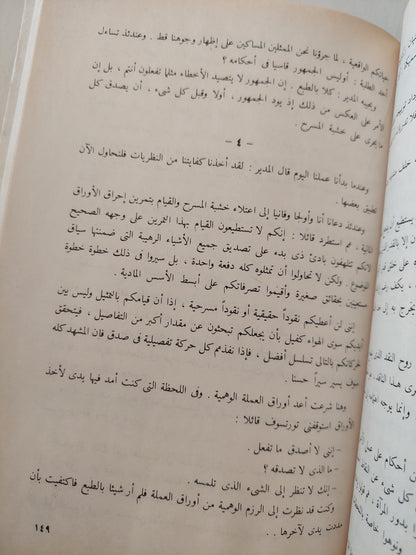 حياتكم الواقعية ، لما جرؤنا نحن الممثلين المساكين على إظهار وجوهنا قط . وعندئذ تساءل
أحد الطلبة : أوليس الجمهور قاسيا فى أحكامه ؟
ويجيبه المدير : كلا بالطبع . إن الجمهور لا يتصيد الأخطاء مثلما تفعلون أنتم ، بل إن
الأمر على العكس من ذلك إذ يود الجمهور ، أولا وقبل كل شىء ، أن يصدق كل
ما يجرى على خشبة المسرح .
– ٤ –
وعندما بدأنا عملنا اليوم قال المدير : لقد أخذنا كفايتنا من النظريات فلنحاول الآن
تطبيق بعضها .
وعندئذ دعانا أنا وأولجا وفانيا إلى اعتلاء خشبة المسرح والقيام بتمرين إحراق الأوراق
المالية . ثم استطرد قائلا : إنكم لا تستطيعون القيام بهذا التمرين على وجهه الصحيح
لأنكم تتلهفون بادئ ذى بدء على تصديق جميع الأشياء الرهيبة التى ضمنتها سياق
الموضوع . ولكن لا تحاولوا أن تمثلوه كله دفعة واحدة ، بل سيروا فى ذلك خطوة خطوة
مستعينين بحقائق صغيرة وأقيموا تصرفاتكم على أبسط الأسس المادية .
إننى لن أعطيكم نقوداً حقيقية أو نقوداً مسرحية ، إذا أن قيامكم بالتمثيل وليس بين
أيديكم سوى الهواء كفيل بأن يجعلكم تبحثون عن مقدار أكبر من التفاصيل ، فيتحقق
لحركاتكم بالتالى تسلسل أفضل ، فإذا نفذتم كل حركة تفصيلية فى صدق فان المشهد كله
سوف يسير سيراً حسنا .
وهنا شرعت أعد أوراق العملة الوهمية . وفى اللحظة التى كنت أمد فيها يدى لآخذ
الأوراق استوقفنى تورتسوف قائلا :
– إننى لا أصدق ما تفعل .
– ما الذى لا تصدقه ؟
– إنك لا تنظر إلى الشىء الذى تلمسه .
وكنت قد نظرت إلى الرزم الوهمية من أوراق العملة فلم أر شيئا بالطبع فاكتفيت بأن
مددت يدى لآخرها . .
١٤٩